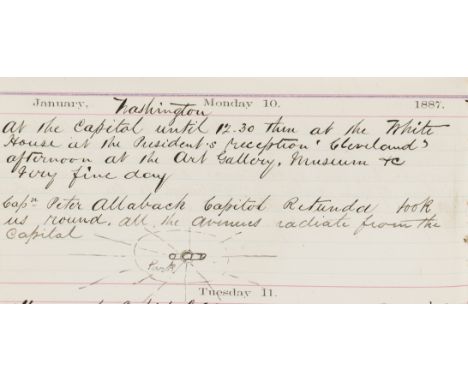 January, Washington Monday 10. 1887.
At the Capital until 12.30 then at the White
House at the President's reception "Cleveland"
afternoon at the Art Gallery, Museum &c
Very fine day
Capn Peter Allaback Capitol Retunda took
us round. all the avenues radiate from the
Capital
Park
Tuesday 11.